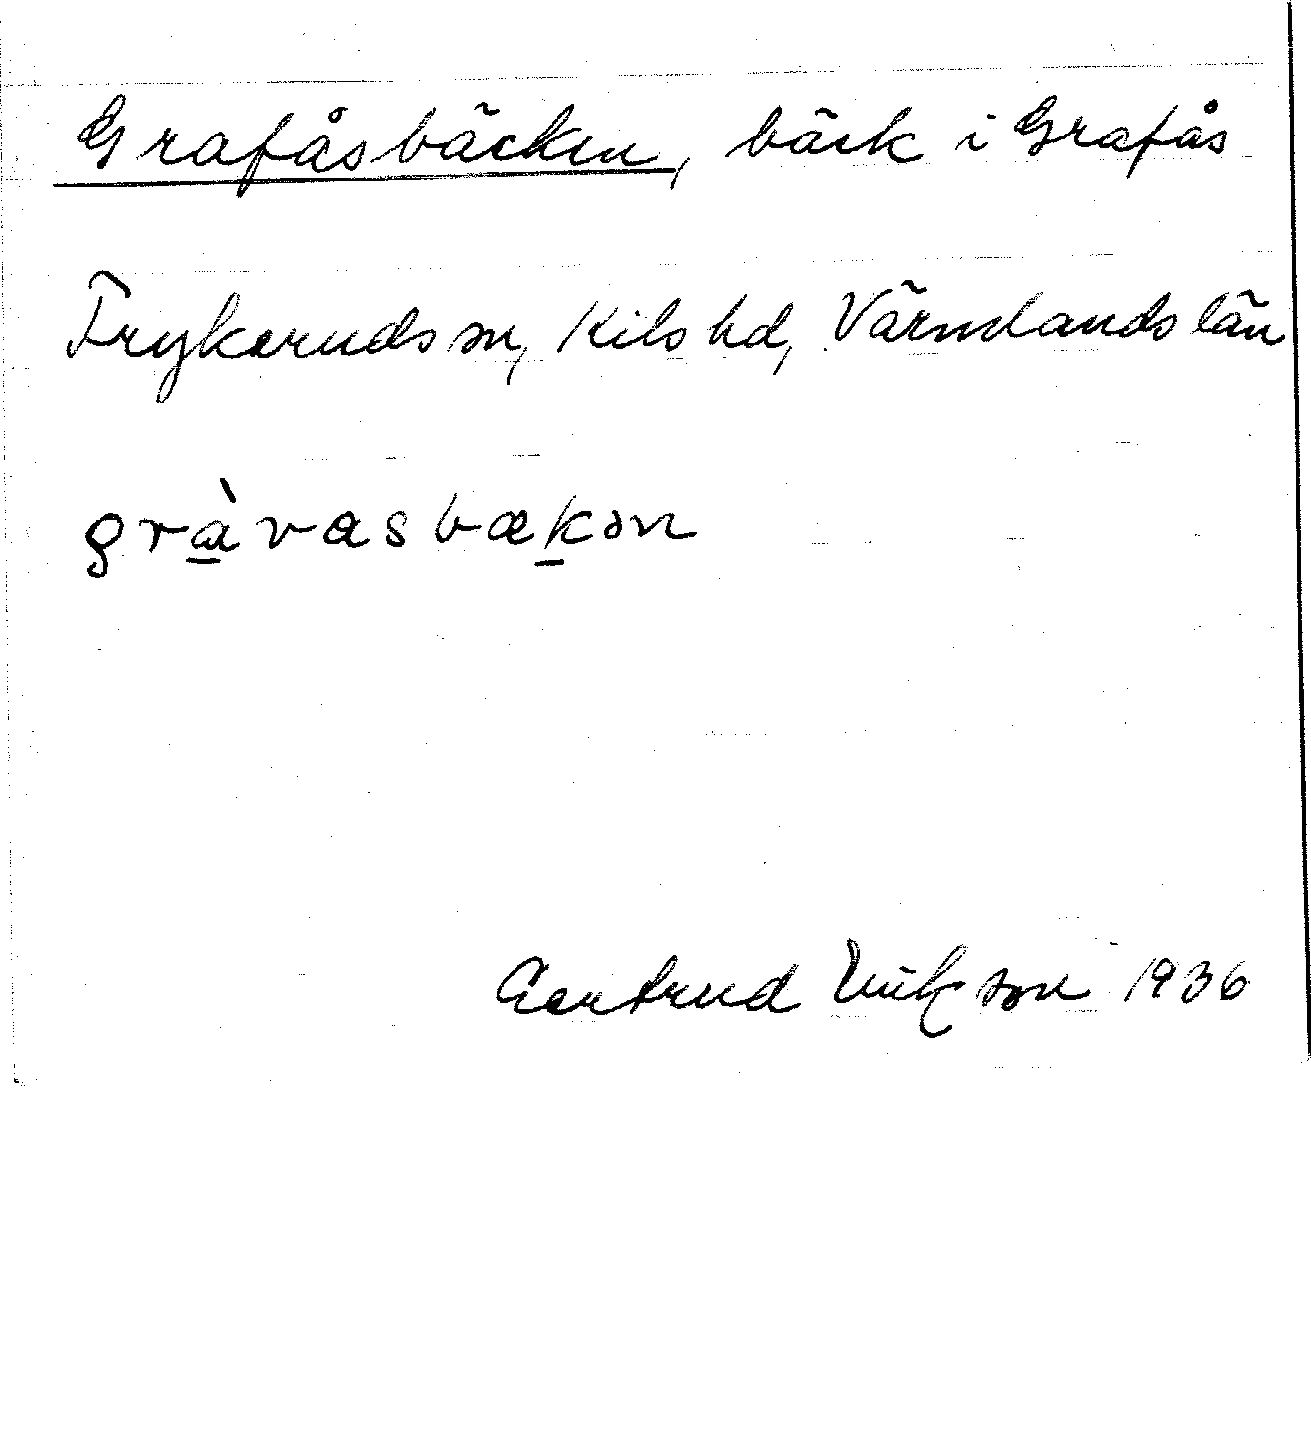 Grafåsbäcken, bäck i Grafås
Frykeruds sn, Kils hd, Värmlands län
gràvasbækən
Gertrud Eriksson 1936